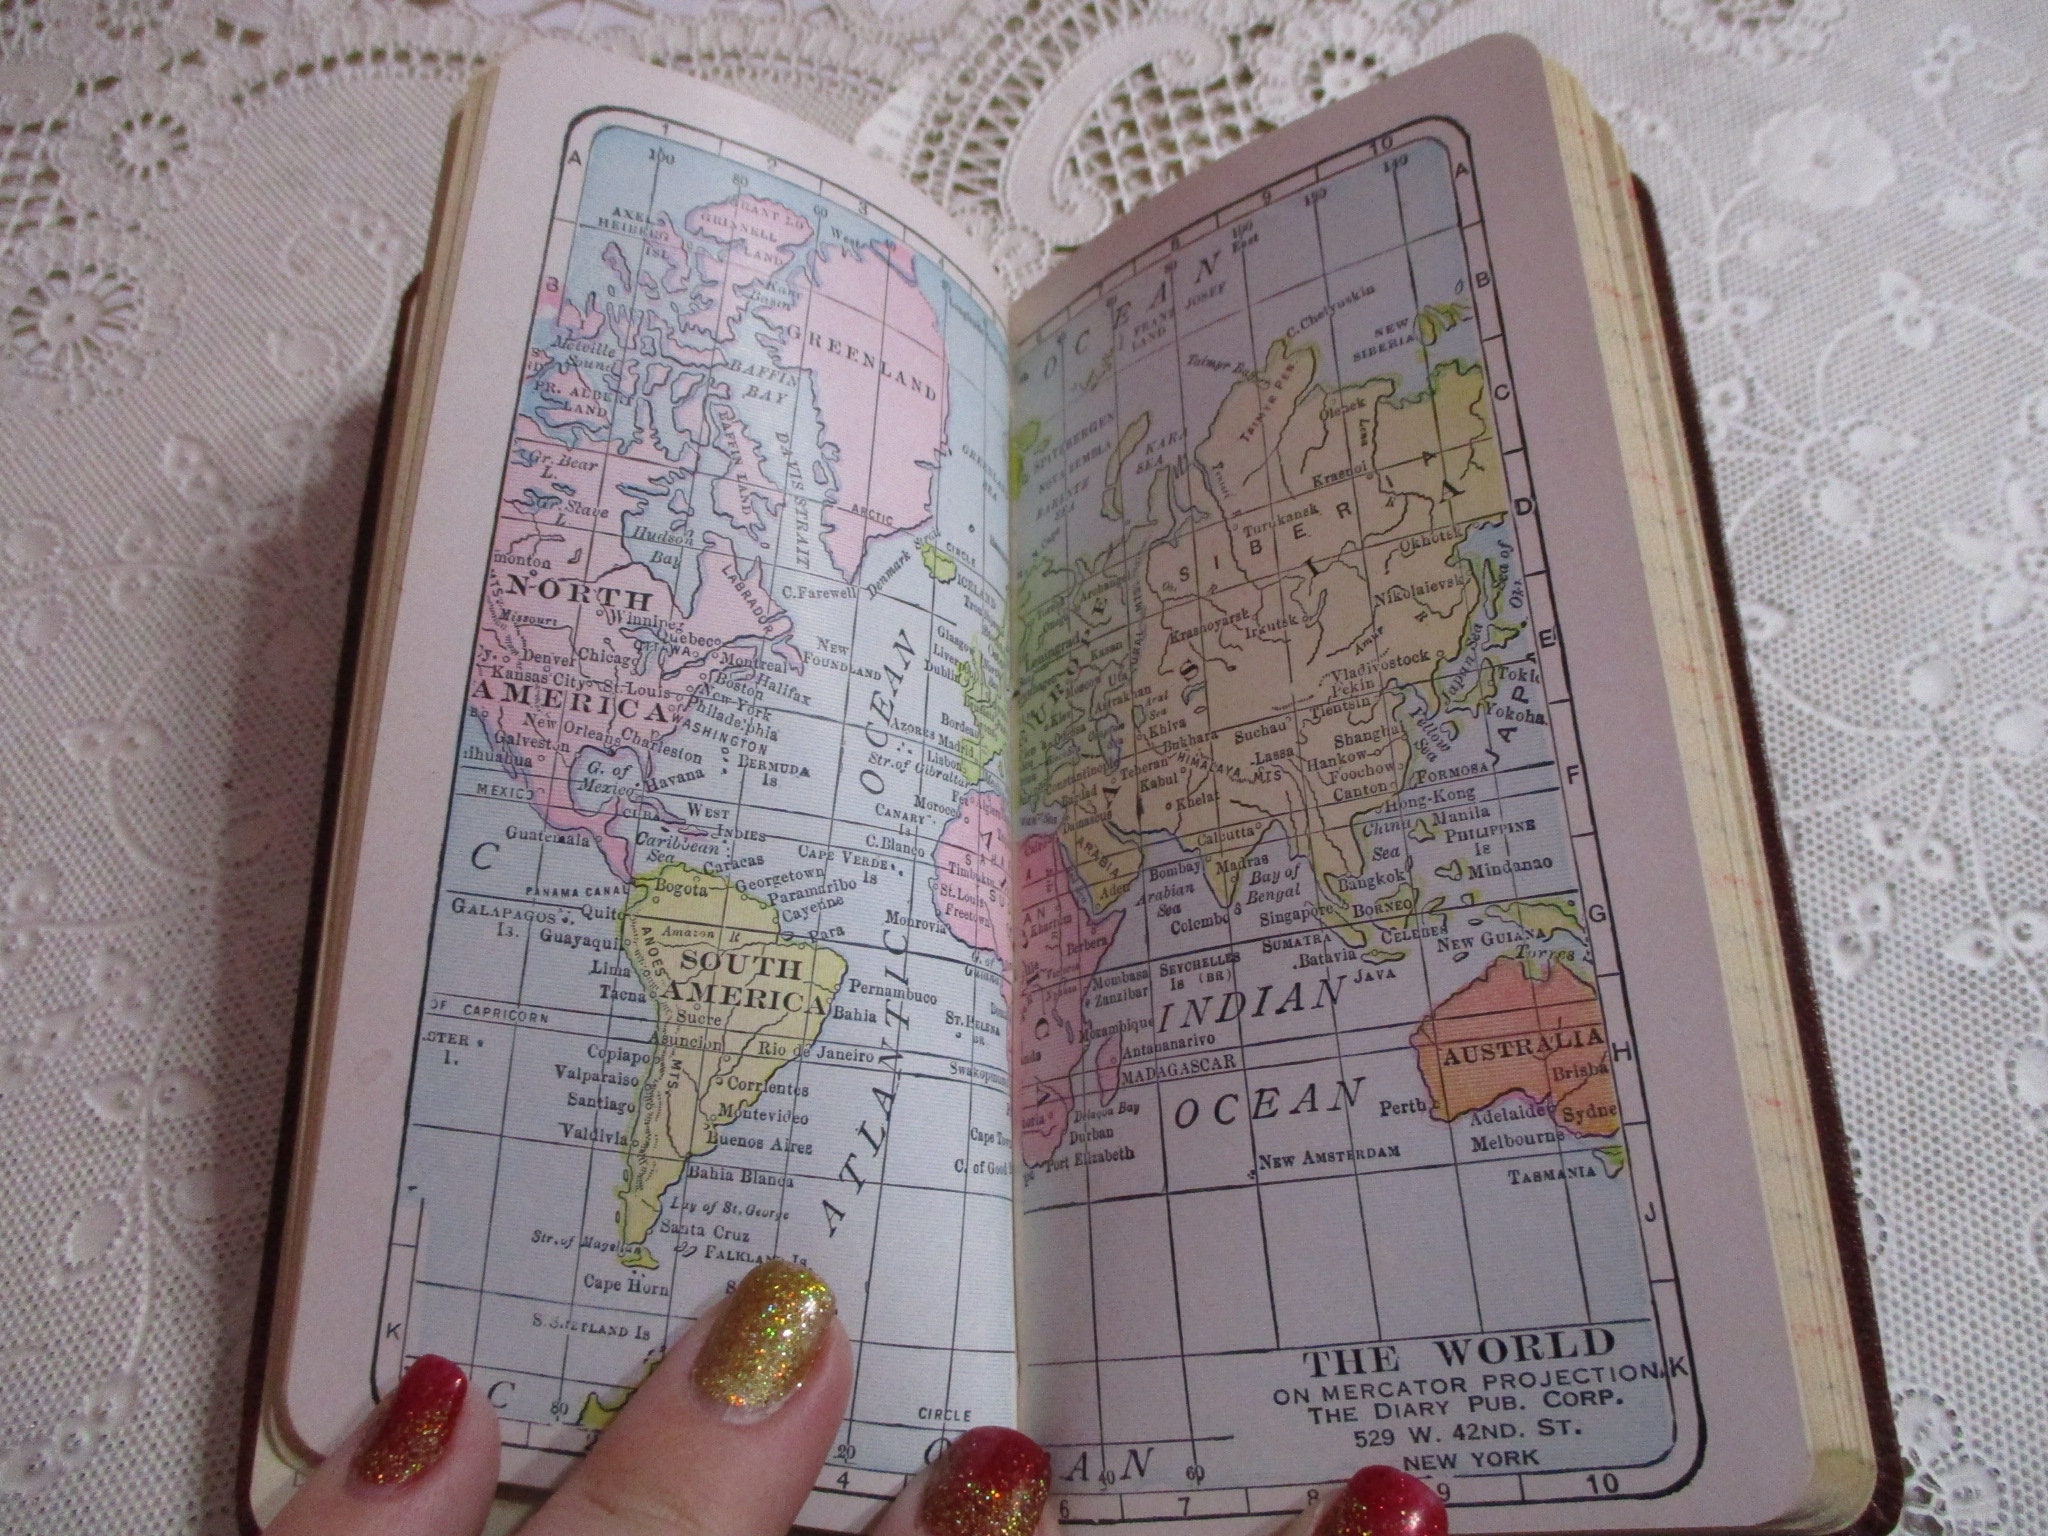 1 2 3
A
100 80 60
GRANT LD
GRINNELL
LAND
West
AXEL
HEIBERG
ISL
Kane
Basin
B
GREENLAND
Melville
Sound
BAFFIN
BAY
PR. ALBERT
LAND
BAFFIN LAND
DAVIS STRAIT
Gr. Bear
L.
Gr. Slave
L
ARCTIC
CIRCLE
Hudson
Bay
Denmark
ICELAND
C. Farewell
LABRADOR
monton
NORTH
Missouri
Winnipeg
Quebec
OTTAWA
Montreal
NEW
FOUNDLAND
Denver
Chicago
Halifax
Boston
Kansas City
St. Louis
New-York
Philadelphia
AMERICA
WASHINGTON
New Orleans
Charleston
Galveston
BERMUDA
Is
ihuahua
G. of
Mexico
Havana
MEXICO
CUBA
WEST
INDIES
Guatemala
Caribbean
Sea
Caracas
C
PANAMA CANAL
Bogota
Georgetown
Paramaribo
Cayenne
GALAPAGOS
Is.
Quito
Guayaquil
Amazon R
Para
ANDES
MTS
SOUTH
AMERICA
Lima
Tacna
Pernambuco
Bahia
Sucre
OF CAPRICORN
Asuncion
Rio de Janeiro
STER
I.
Copiapo
Valparaiso
Corrientes
Santiago
Montevideo
Valdivia
Buenos Aires
Bahia Blanca
Bay of St. George
Santa Cruz
Str. of Magellan
FALKLAND Is
Cape Horn
S. SHETLAND Is
K
C
80
20
CIRCLE
4
ATLANTIC
OCEAN
Glasgow
Dublin
AZORES
Madrid
Lisbon
Str. of Gibraltar
Morocco
CANARY
Is
C. Blanco
CAPE VERDE
Is
Timbuktu
St. Louis
Freetown
Monrovia
G. of
Guinea
ST. HELENA
BR
Swakopmun
Cape Tow
C. of Good
7 8 9 10
A
100
East
120
140
OCEAN
FRANZ
JOSEF
LAND
C. Chelyuskin
NEW
SIBERIA
B
Taimyr Bay
TAIMYR PEN
SPITZBERGEN
NOVA ZEMBLA
BARENTZ
SEA
KARA
SEA
C
Olenek
Lena
Krasnoi
D
Turukansk
SIBERIA
Okhotsk
Sea of
Archangel
Nikolaievsk
Krasnoyarsk
Irkutsk
Amur
E
Kasan
Moscow
Ufa
ASIA
Vladivostock
Pekin
Japan Sea
Astrakhan
Aral
Sea
Khiva
Tientsin
JAPAN
Bukhara
Suchau
Yellow
Sea
Yokoha
Shanghai
Teheran
HIMALAYA MTS
Lassa
Hankow
Kabul
Foochow
FORMOSA
F
Khelat
Canton
Hong-Kong
Damascus
Calcutta
China
Sea
Manila
PHILIPPINE
Is
ARABIA
Bombay
Madras
Mindanao
Aden
Arabian
Sea
Bay of
Bengal
Bangkok
Khartum
Colombo
Singapore
BORNEO
G
Berbera
SUMATRA
CELEBES
NEW GUINEA
Batavia
JAVA
Torres
Mombasa
Zanzibar
SEYCHELLES
Is (BR)
INDIAN
Mozambique
Antananarivo
MADAGASCAR
AUSTRALIA
H
Brisba
OCEAN
Perth
Adelaide
Sydne
Delagoa Bay
Durban
Melbourne
Port Elizabeth
NEW AMSTERDAM
TASMANIA
J
THE WORLD
ON MERCATOR PROJECTION
K
THE DIARY PUB. CORP.
529 W. 42ND. ST.
NEW YORK
40 60
6 7 8 9 10